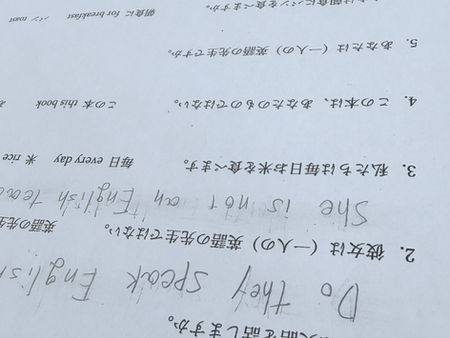 語を話しますか。
Do they speak English
2. 彼女は（一人の）英語の先生ではない。 英語の先生
She is not an English teac
3. 私たちは毎日お米を食べます。 毎日 every day 米 rice
4. この本は、あなたのものではない。 この本 this book
5. あなたは（一人の）英語の先生ですか。
は朝食にパンを食べます。 朝食に for breakfast パン toast